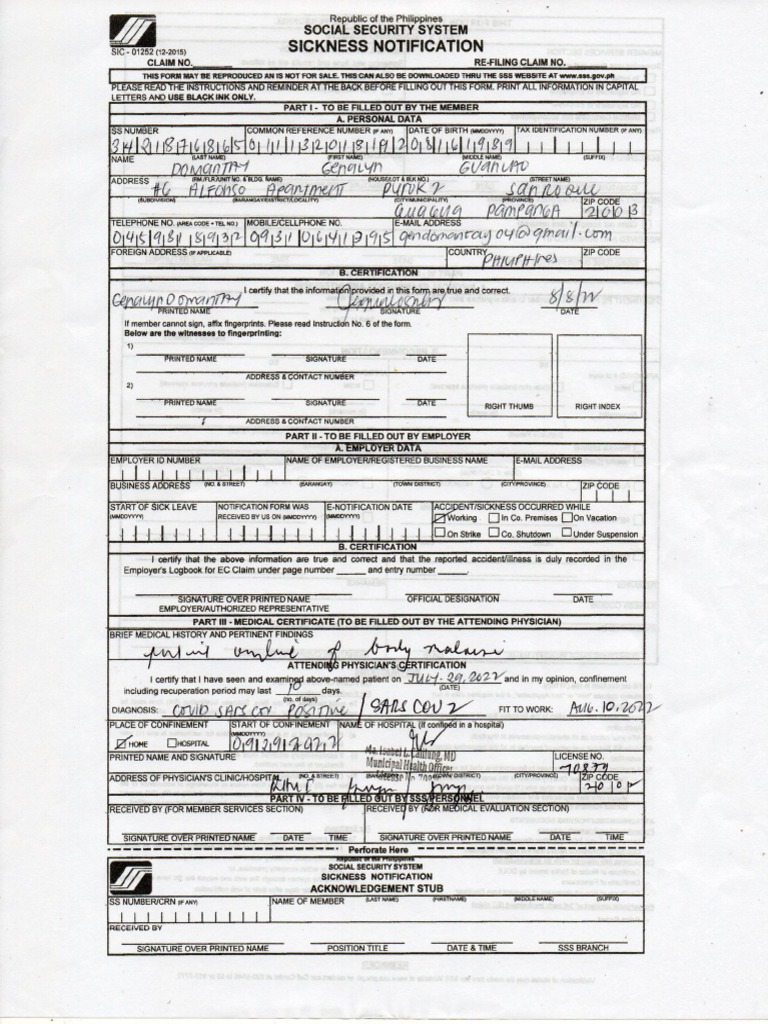 Republic of the Philippines
SOCIAL SECURITY SYSTEM
SICKNESS NOTIFICATION
SIC - 01252 (12-2015)
CLAIM NO.
RE-FILING CLAIM NO.
THIS FORM MAY BE REPRODUCED AN IS NOT FOR SALE. THIS CAN ALSO BE DOWNLOADED THRU THE SSS WEBSITE AT www.sss.gov.ph
PLEASE READ THE INSTRUCTIONS AND REMINDER AT THE BACK BEFORE FILLING OUT THIS FORM. PRINT ALL INFORMATION IN CAPITAL
LETTERS AND USE BLACK INK ONLY.
PART I - TO BE FILLED OUT BY THE MEMBER
A. PERSONAL DATA
SS NUMBER COMMON REFERENCE NUMBER (IF ANY) DATE OF BIRTH (MMDDYYYY) TAX IDENTIFICATION NUMBER (IF ANY)
3421876865 011132018192 08161989
NAME (LAST NAME) (FIRST NAME) (MIDDLE NAME) (SUFFIX)
DOMANTAY Genalyn
ADDRESS (RM./FLR/UNIT NO. & BLDG. NAME) (HOUSE/LOT & BLK NO.) (STREET NAME)
#6 Alfonso Apartment Purok 2 San Roque
(SUBDIVISION) (BARANGAY/DISTRICT/LOCALITY) (CITY/MUNICIPALITY) (PROVINCE) ZIP CODE
Guagua PAMPANGA 2003
TELEPHONE NO. (AREA CODE + TEL NO.) MOBILE/CELLPHONE NO. E-MAIL ADDRESS
0459818932 09310641795 gendomantay04@gmail.com
FOREIGN ADDRESS (IF APPLICABLE) COUNTRY ZIP CODE
PHILIPPINES
B. CERTIFICATION
I certify that the information provided in this form are true and correct.
Genalyn Domantay 8/8/22
PRINTED NAME SIGNATURE DATE
If member cannot sign, affix fingerprints. Please read Instruction No. 6 of the form.
Below are the witnesses to fingerprinting:
1)
PRINTED NAME SIGNATURE DATE
ADDRESS & CONTACT NUMBER
2)
PRINTED NAME SIGNATURE DATE
RIGHT THUMB RIGHT INDEX
ADDRESS & CONTACT NUMBER
PART II - TO BE FILLED OUT BY EMPLOYER
A. EMPLOYER DATA
EMPLOYER ID NUMBER NAME OF EMPLOYER/REGISTERED BUSINESS NAME E-MAIL ADDRESS
BUSINESS ADDRESS (NO. & STREET) (BARANGAY) (TOWN DISTRICT) (CITY/PROVINCE) ZIP CODE
START OF SICK LEAVE NOTIFICATION FORM WAS E-NOTIFICATION DATE ACCIDENT/SICKNESS OCCURRED WHILE
(MMDDYYYY) RECEIVED BY US ON (MMDDYYYY) (MMDDYYYY) Working In Co. Premises On Vacation
On Strike Co. Shutdown Under Suspension
B. CERTIFICATION
I certify that the above information are true and correct and that the reported accident/illness is duly recorded in the
Employer's Logbook for EC Claim under page number and entry number .
SIGNATURE OVER PRINTED NAME OFFICIAL DESIGNATION DATE
EMPLOYER/AUTHORIZED REPRESENTATIVE
PART III - MEDICAL CERTIFICATE (TO BE FILLED OUT BY THE ATTENDING PHYSICIAN)
BRIEF MEDICAL HISTORY AND PERTINENT FINDINGS
of body malaise
ATTENDING PHYSICIAN'S CERTIFICATION
I certify that I have seen and examined above-named patient on JULY-29,2022 and in my opinion, confinement
(DATE)
including recuperation period may last 10 days.
(no. of days)
DIAGNOSIS: COVID SARS COV POSITIVE / SARS COV 2 FIT TO WORK: AUG. 10, 2022
PLACE OF CONFINEMENT START OF CONFINEMENT NAME OF HOSPITAL (if confined in a hospital)
(MMDDYYYY)
HOME HOSPITAL
PRINTED NAME AND SIGNATURE MD LICENSE NO.
Municipal Health Officer 70877
ADDRESS OF PHYSICIAN'S CLINIC/HOSPITAL (NO. & STREET) (BARANGAY) (TOWN DISTRICT) (CITY/PROVINCE) ZIP CODE
PART IV - TO BE FILLED OUT BY SSS PERSONNEL
RECEIVED BY (FOR MEMBER SERVICES SECTION) RECEIVED BY (FOR MEDICAL EVALUATION SECTION)
SIGNATURE OVER PRINTED NAME DATE TIME SIGNATURE OVER PRINTED NAME DATE TIME
Perforate Here
Republic of the Philippines
SOCIAL SECURITY SYSTEM
SICKNESS NOTIFICATION
ACKNOWLEDGEMENT STUB
SS NUMBER/CRN (IF ANY) NAME OF MEMBER (LAST NAME) (FIRSTNAME) (MIDDLE NAME) (SUFFIX)
RECEIVED BY
SIGNATURE OVER PRINTED NAME POSITION TITLE DATE & TIME SSS BRANCH